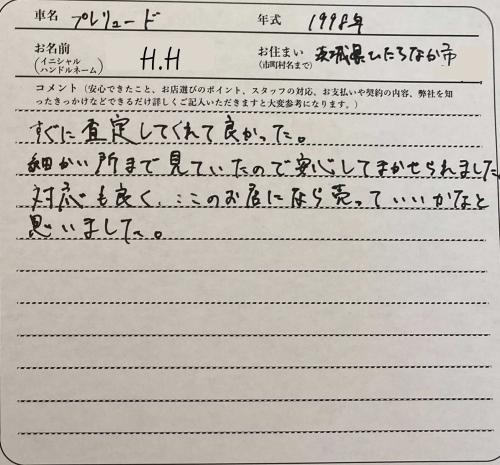 車名 プレリュード 年式 1998年
お名前(イニシャル ハンドルネーム) H.H お住まい(市町村名まで) 茨城県ひたちなか市
コメント（安心できたこと、お店選びのポイント、スタッフの対応、お支払いや契約の内容、弊社を知
ったきっかけなどできるだけ詳しくご記入いただきますと大変参考になります。）
すぐに査定してくれて良かった。
細かい所まで見ていたので安心してまかせられました。
対応も良く、ここのお店になら売っていいかなと
思いました。